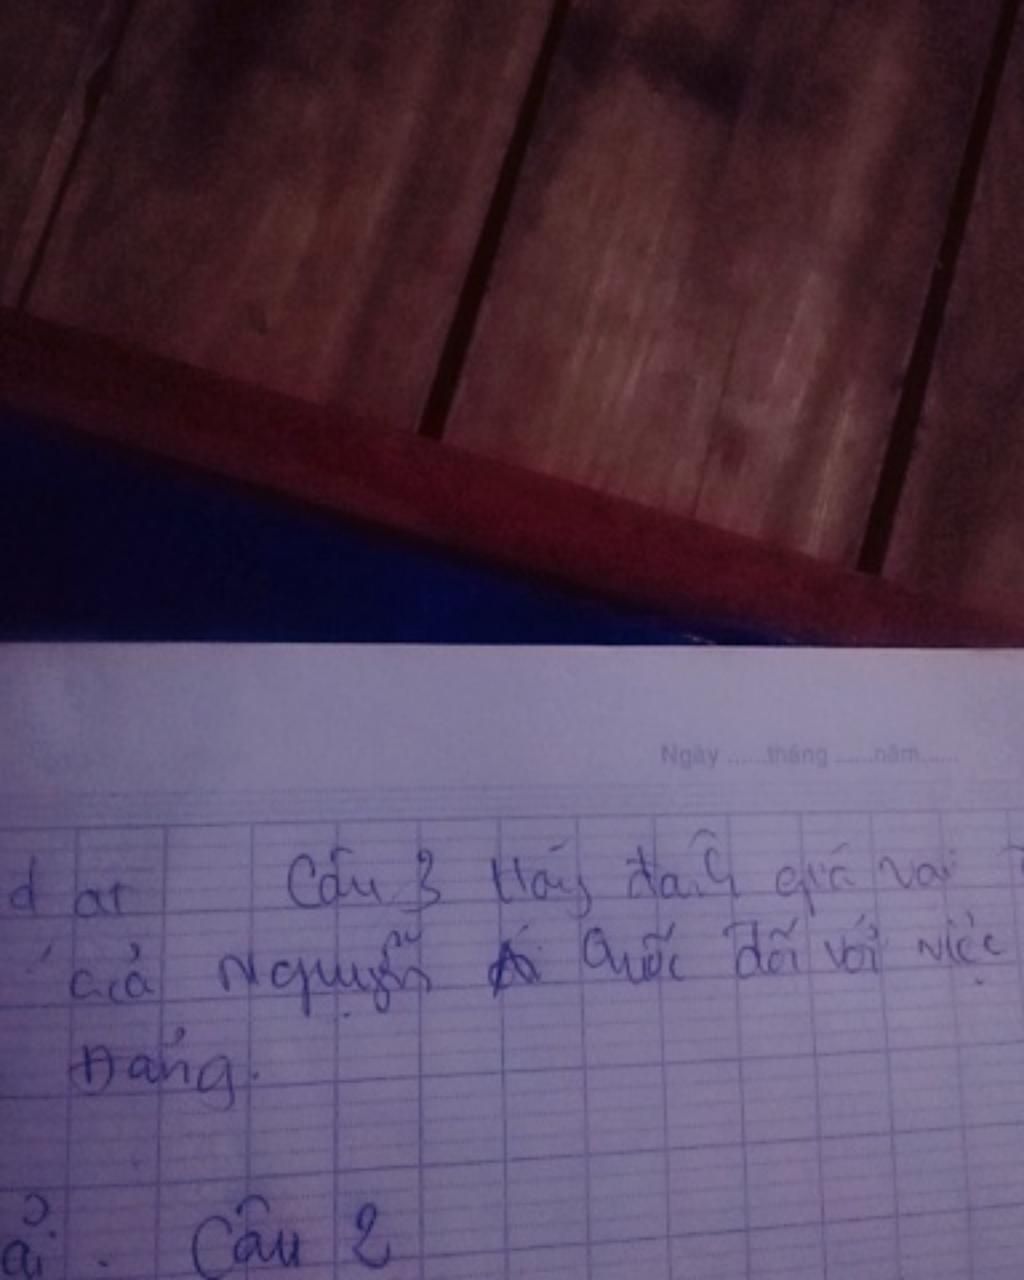 Ngày ......tháng ......năm......
Câu 3 Hãy đánh giá vai
của Nguyễn Ái Quốc đối với việc
Đảng.
Câu 2